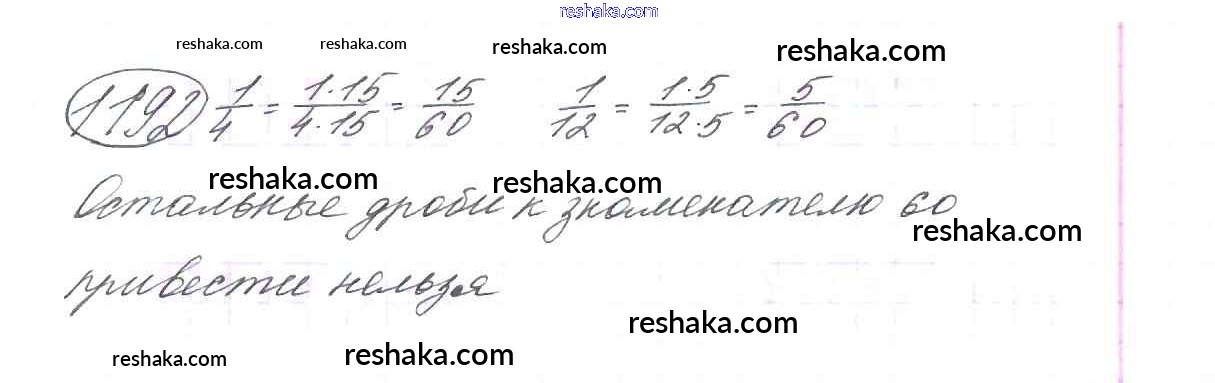 reshaka.com
reshaka.com reshaka.com reshaka.com reshaka.com
1192 1/4 = 1·15/4·15 = 15/60 1/12 = 1·5/12·5 = 5/60
reshaka.com reshaka.com
Остальные дроби к знаменателю 60
reshaka.com
привести нельзя
reshaka.com
reshaka.com reshaka.com